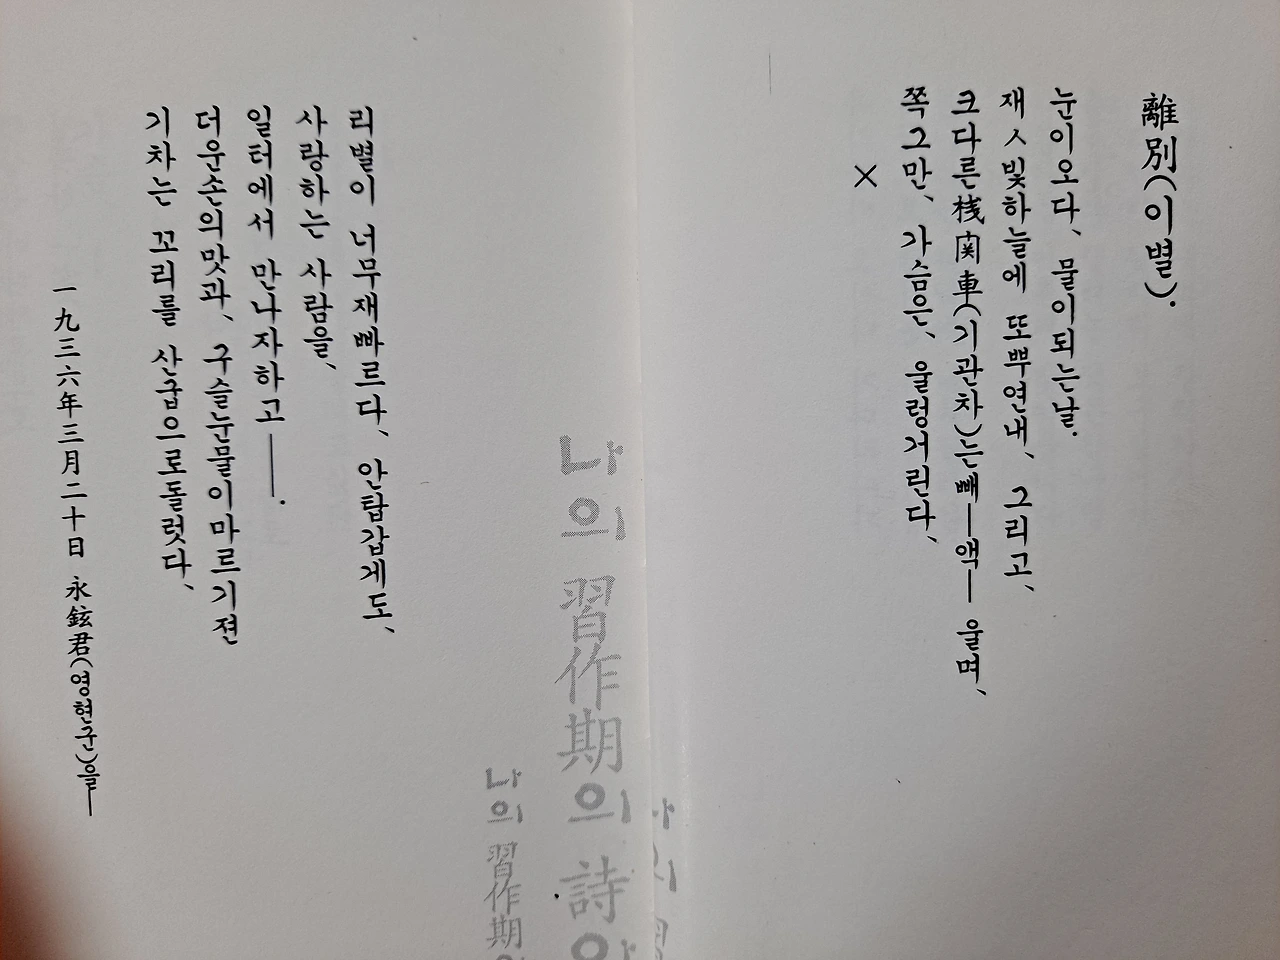 離別(이별).
눈이오다、 물이되는날.
재ㅅ빛하늘에 또뿌연내、 그리고、
크다른 桟関車(기관차)는 빼—액— 울며、
쪽그만、 가슴은、 울렁거린다、
×
리별이 너무재빠르다、 안탑갑게도、
사랑하는 사람을、
일터에서 만나자하고——.
더운손의맛과、 구슬눈물이마르기젼
기차는 꼬리를 산굽으로돌렷다、
一九三六年三月二十日 永鉉君(영현군)을—
나의 習作期의 詩아
나의 習作期